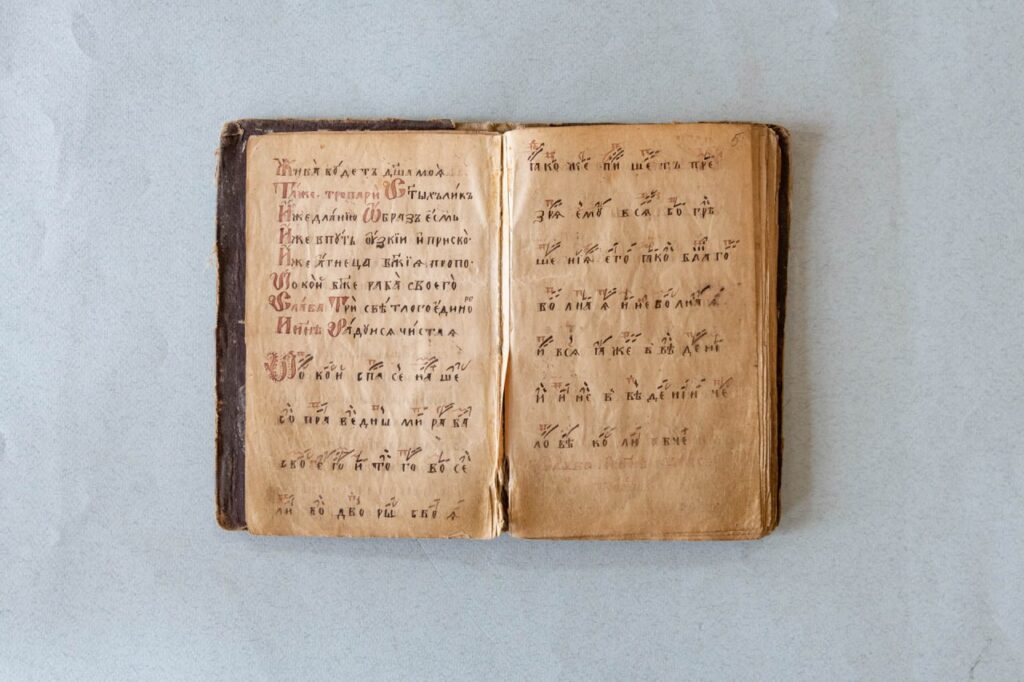 Жива бꙋдетъ дш҃а моѧ
Таже тропари Ст҃ыхъ ликъ
Иже длание Ѡбразъ есмь
Иже в пꙋть ᲂузкїи и приско
Иже агнеца бж҃їѧ пропо
Ѹпокой бж҃е раба своего
Слава Три свѣтлогоедино
И нн҃ѣ Радꙋисѧ чистаѧ
Ѹпокои спасе наше
со праведны ми раба
своего и то го во се
ли во дво ры сво ѧ
ꙗкоже пи шетъ пре
зрѧ емꙋ всѧ со грѣ
ше нїѧ его ꙗко благо
во лнаѧ и нево лнаѧ
и всѧ ꙗже в вѣ де нї
и и не в вѣ де нїи че
ло вѣ ко лю бче
5